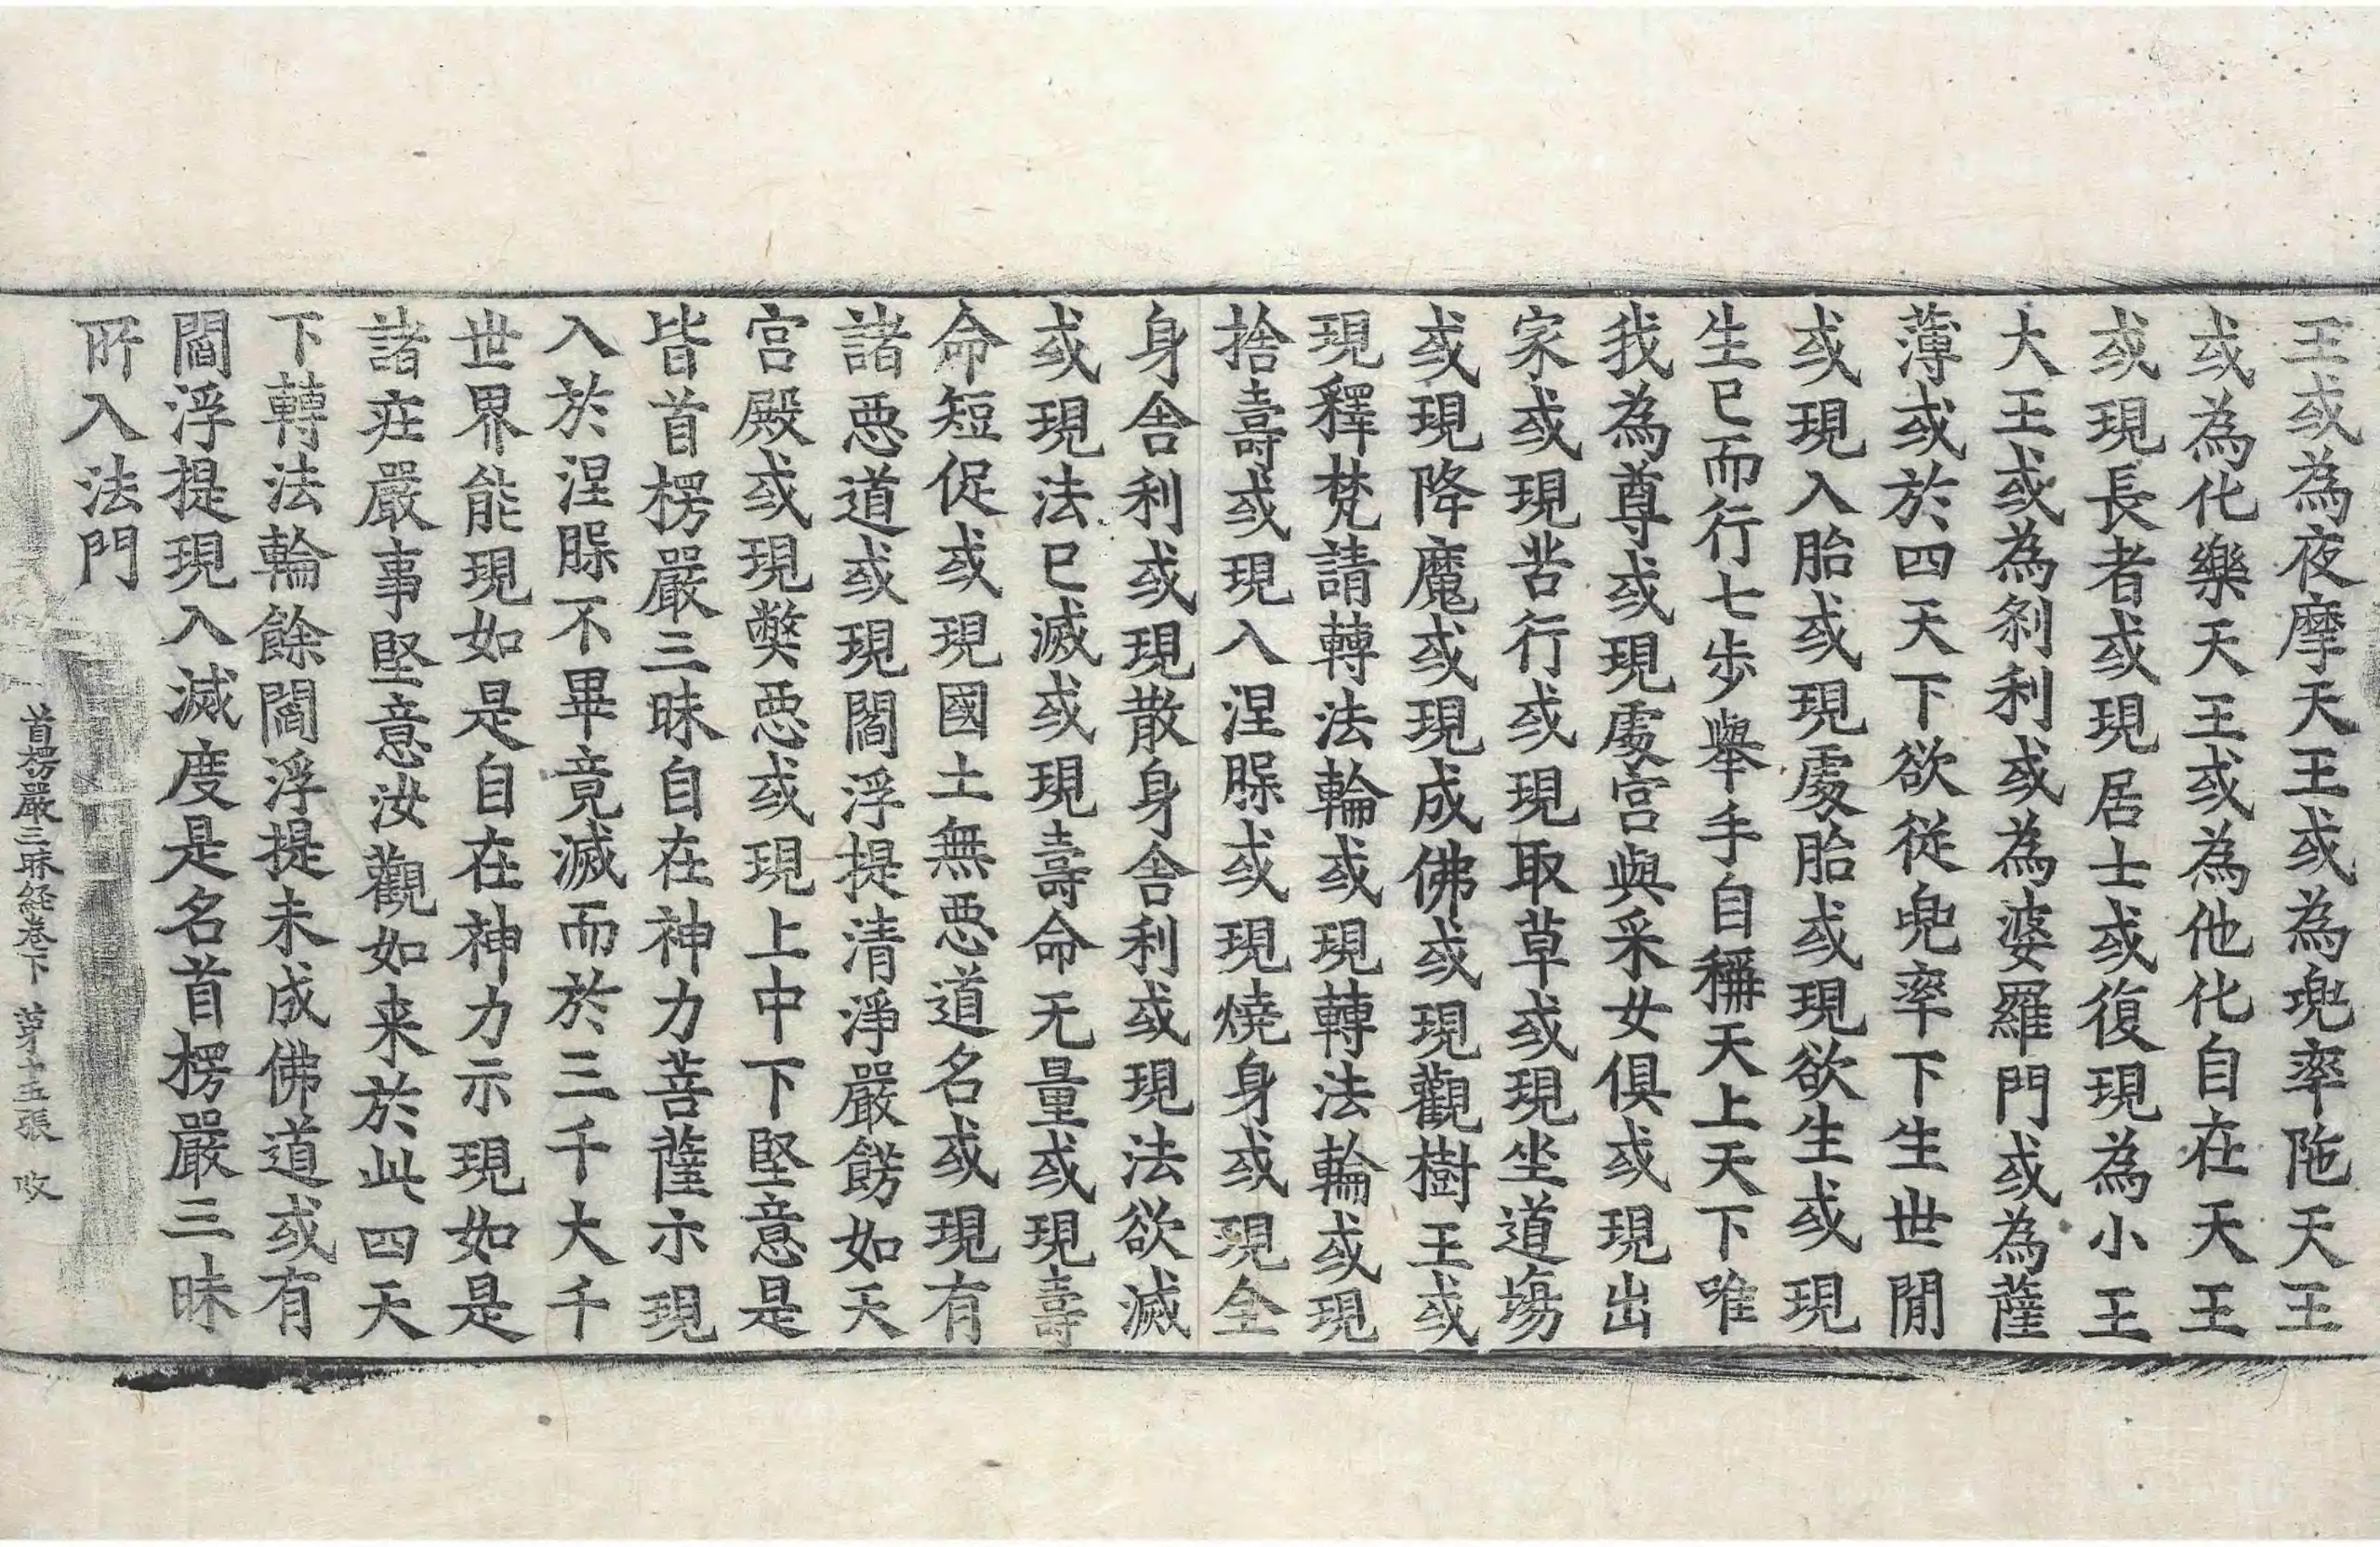 王或為夜摩天王或為兜率陁天王
或為化樂天王或為他化自在天王
或現長者或現居士或復現為小王
大王或為剎利或為婆羅門或為薩
薄或於四天下欲從兜率下生世閒
或現入胎或現處胎或現欲生或現
生已而行七步舉手自稱天上天下唯
我為尊或現處宮與采女俱或現出
家或現苦行或現取草或現坐道場
或現降魔或現成佛或現觀樹王或
現釋梵請轉法輪或現轉法輪或現
捨壽或現入涅槃或現燒身或現全
身舍利或現散身舍利或現法欲滅
或現法已滅或現壽命无量或現壽
命短促或現國土無惡道名或現有
諸惡道或現閻浮提清淨嚴餝如天
宮殿或現弊惡或現上中下堅意是
皆首楞嚴三昧自在神力菩薩示現
入於涅槃不畢竟滅而於三千大千
世界能現如是自在神力示現如是
諸莊嚴事堅意汝觀如来於此四天
下轉法輪餘閻浮提未成佛道或有
閻浮提現入滅度是名首楞嚴三昧
所入法門
首楞嚴三昧経卷下 苐十五張 攺